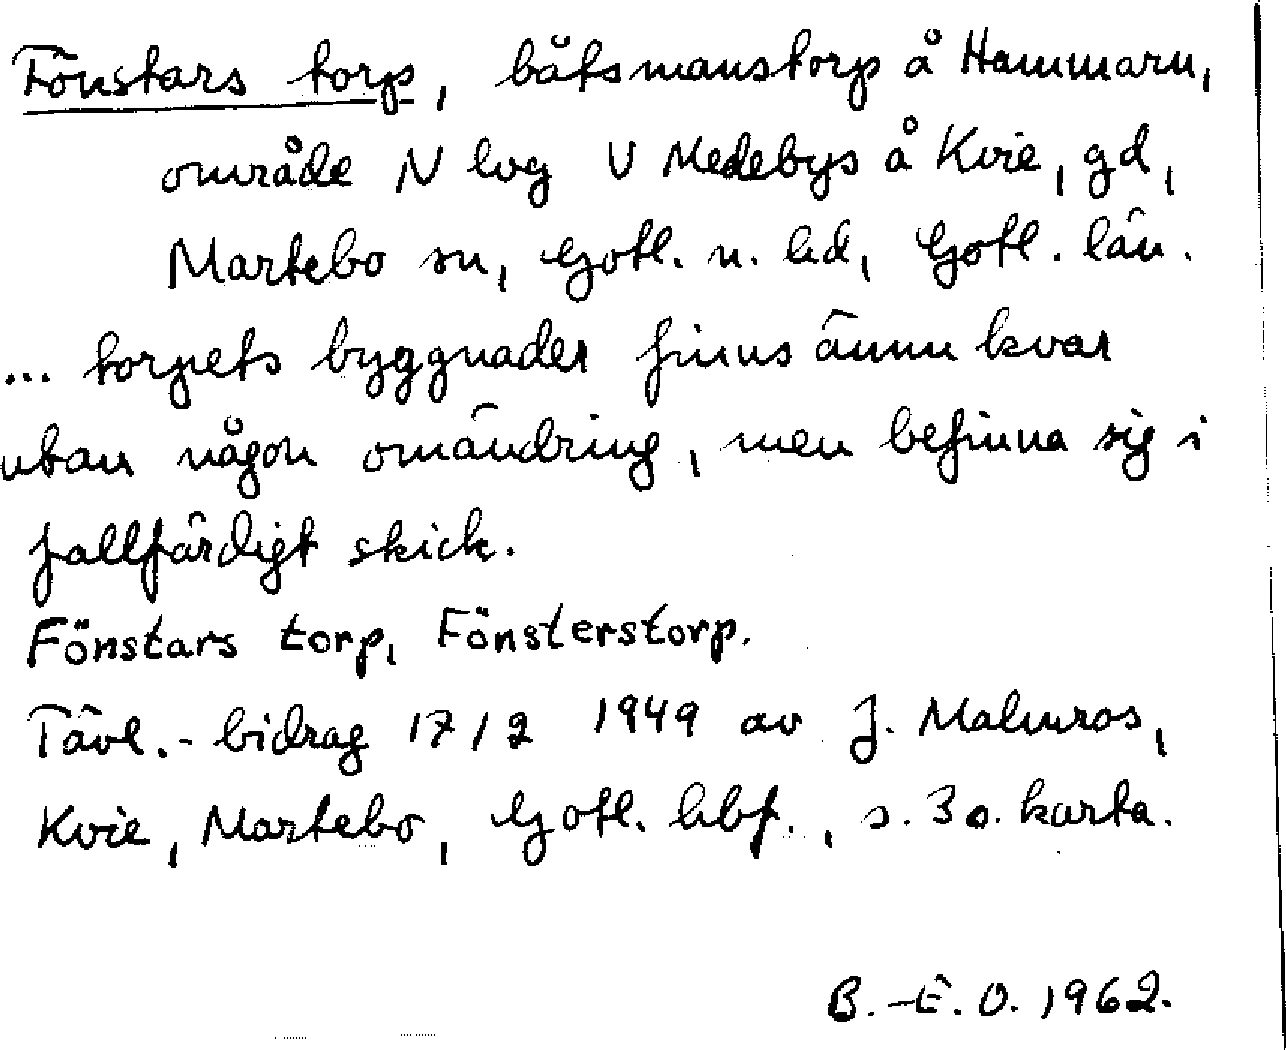 Fönstars torp, båtsmanstorp å Hammarn,
område N lvg V Medebys å Kvie, gd,
Martebo sn, Gotl. n. hd, Gotl. län.
... torpets byggnader finns ännu kvar
utan någon omändring, men befinna sig i
fallfärdigt skick.
Fönstars torp, Fönsterstorp.
Tävl.-bidrag 17/2 1949 av J. Malmros,
Kvie, Martebo, Gotl. hbf., s. 3 o. karta.
B.-E. O. 1962.